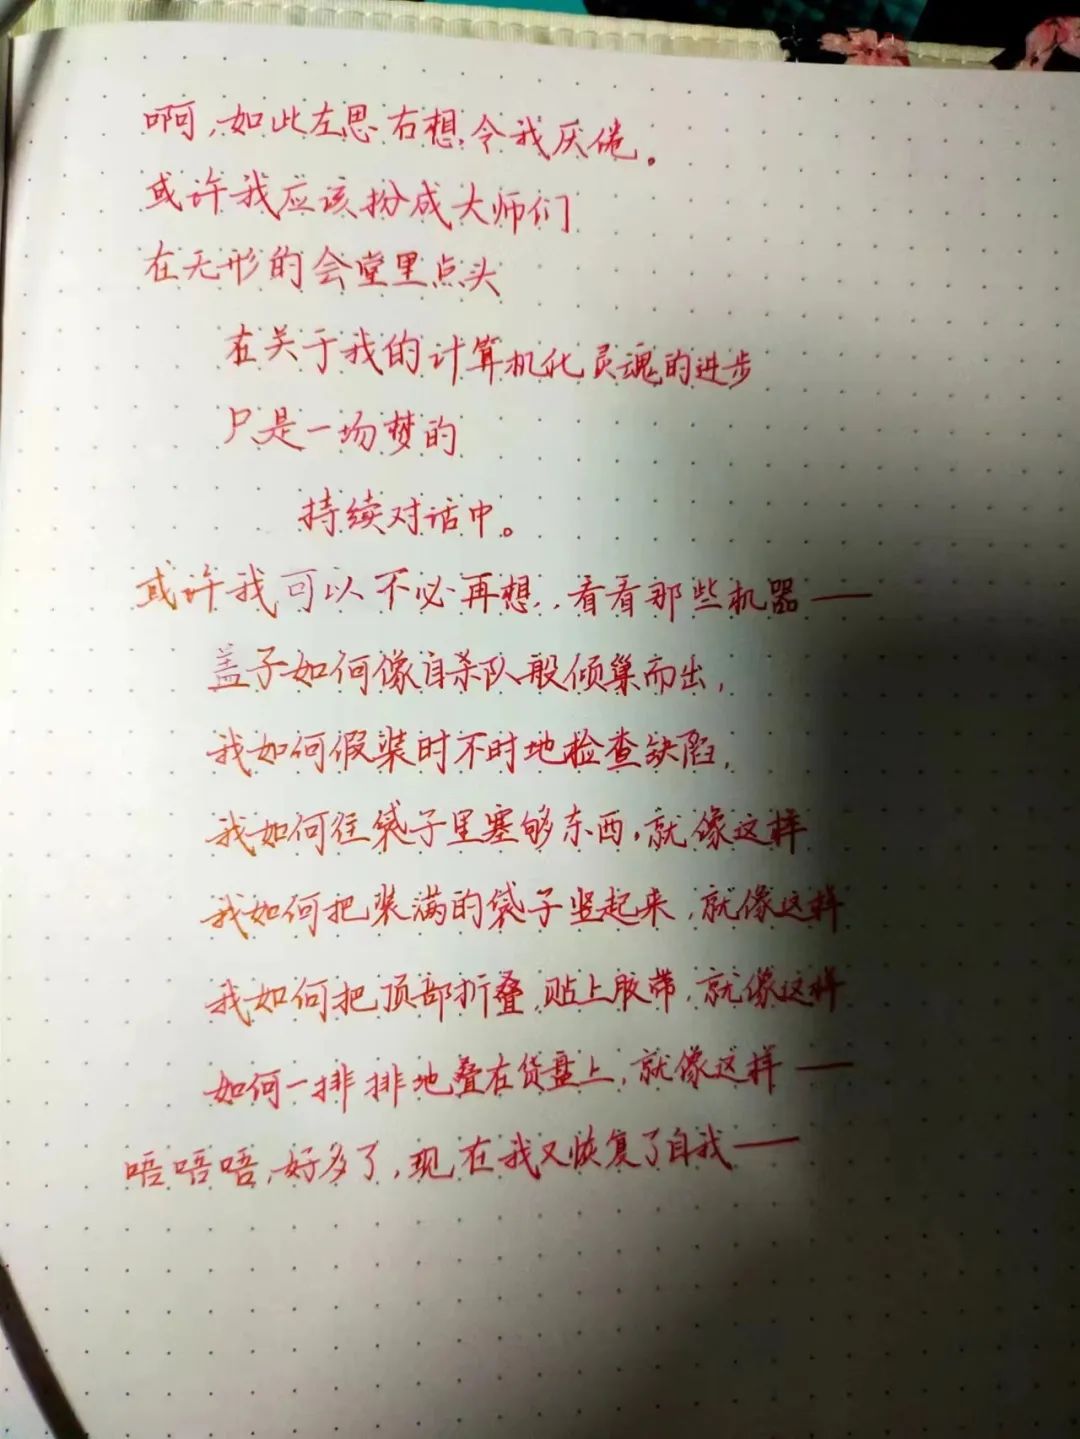 啊，如此左思右想，令我厌倦。
或许我应该扮成大师们
在无形的会堂里点头
在关于我的计算机化灵魂的进步
只是一场梦的
持续对话中。
或许我可以不必再想，看看那些机器——
盖子如何像自杀队般倾巢而出，
我如何假装时不时地检查缺陷，
我如何往袋子里塞够东西，就像这样
我如何把装满的袋子竖起来，就像这样
我如何把顶部折叠，贴上胶带，就像这样
如何一排排地叠在货盘上，就像这样——
唔唔唔，好多了，现在我又恢复了自我——